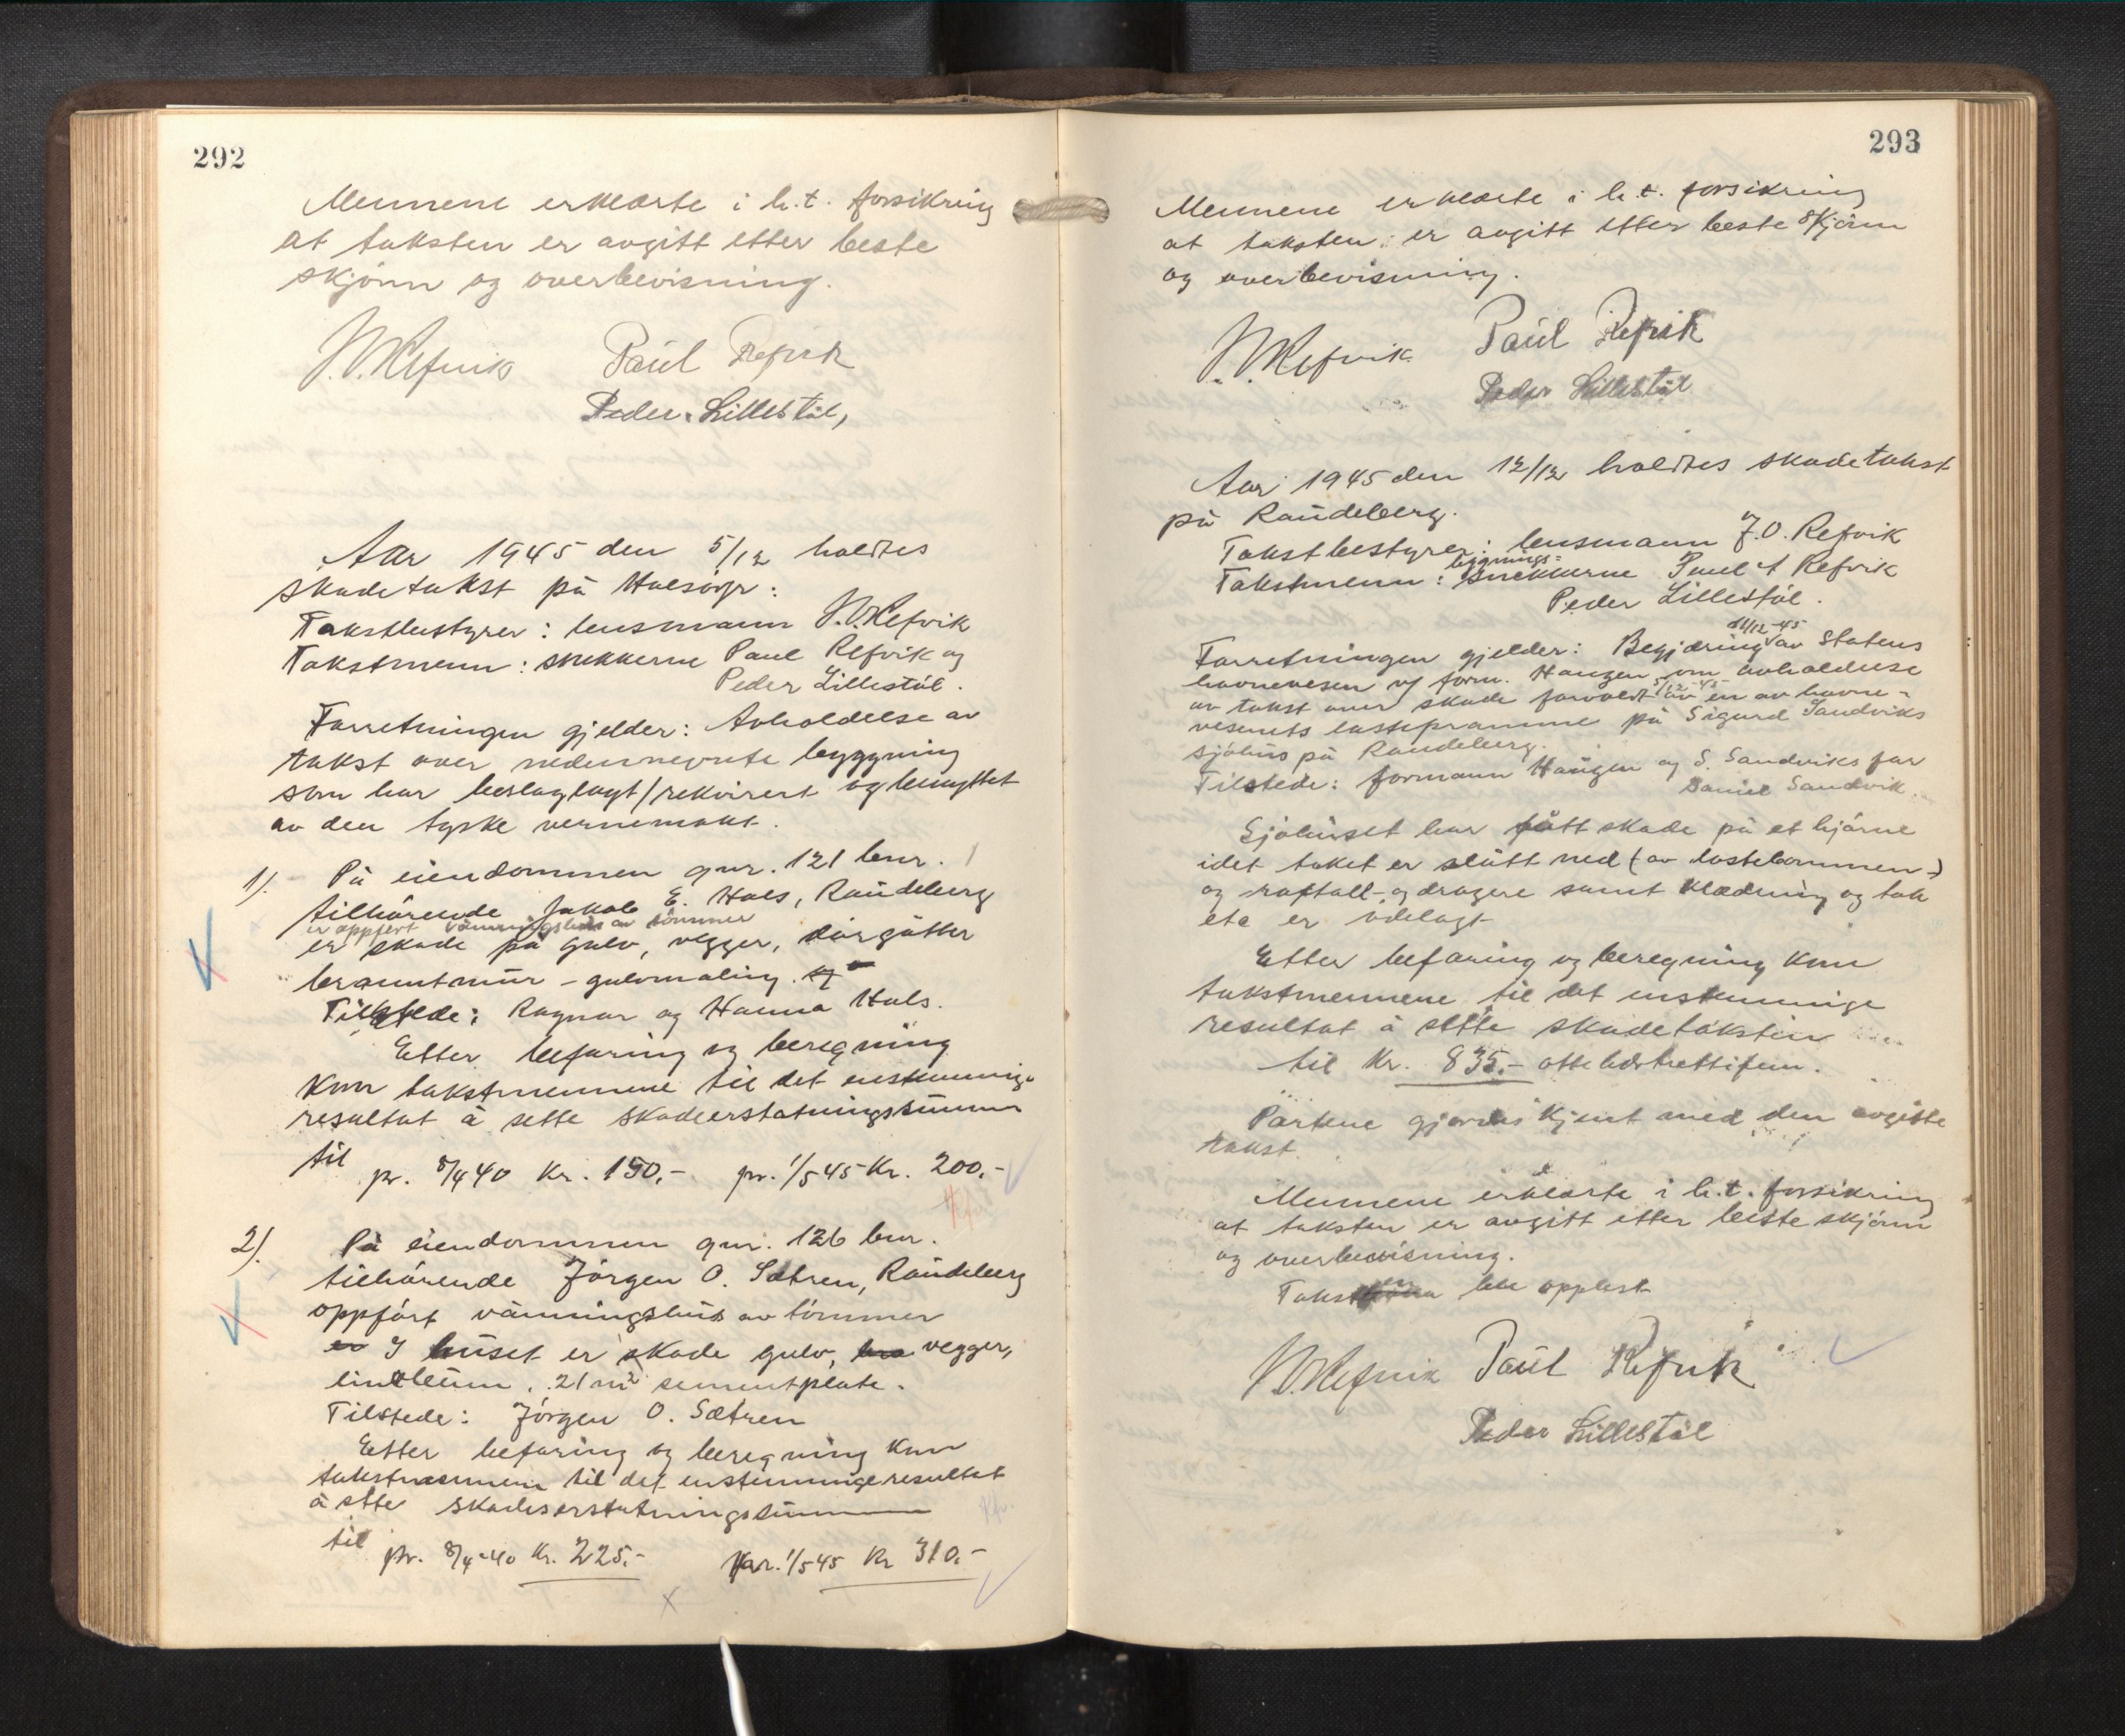 292
Mennene erklærte i h.t. forsikring
at taksten er avgitt etter beste
skjönn og overbevisning.
J.O. Refvik Paul Refvik
Peder Lillestöl,
Aar 1945 den 5/12 holdtes
skadetakst på Halsör:
Takstbestyrer: lensmann J.O. Refvik
Takstmenn: snekkerne Paul Refvik og
Peder Lillestöl.
Forretningen gjelder: Avholdelse av
takst over nedennevnte byggning
som har beslaglagt/rekvirert og benyttet
av den tyske vernemakt.
1). På eiendommen gnr. 121 bnr. 1
tilhörende Jakob E. Hals, Raudeberg
er oppfört våningshus av tömmer
er skade på gulv, vegger, dörgåtter
brannmur - gulvmaling.
Tilstede: Ragnar og Hanna Hals.
Etter befaring og beregning
kom takstmennene til det enstemmige
resultat å sette skadeerstatningssummen
til pr. 8/4 40 Kr. 150.- pr. 1/5 45 Kr. 200.-
2). På eiendommen gnr. 126 bnr.
tilhörende Jörgen O. Sætren, Raudeberg
oppfört våningshus av tömmer
er I huset er skade gulv, vegger,
linoleum, 21 m2 sementplate.
Tilstede: Jörgen O. Sætren
Etter befaring og beregning kom
takstmennene til det enstemmige resultat
å sette skadeserstatningssummen
til pr. 8/4-40 Kr. 225.- pr. 1/5 45 Kr 310.-
293
Mennene erklærte i h.t. forsikring
at taksten er avgitt etter beste skjönn
og overbevisning.
J.O. Refvik Paul Refvik
Peder Lillestöl
Aar 1945 den 12/12 holdtes skadetakst
på Raudeberg.
Takstbestyrer: lensmann J.O. Refvik
bygnings-
Takstmenn: snekkerne Paul A Refvik
Peder Lillestöl.
11/12-45
Forretningen gjelder: Begjæring av Statens
havnevesen v/ form. Haugen om avholdelse
av takst over skade forvoldt av en av havne-
vesenets lastepramme på Sigurd Sandviks
sjöhus på Raudeberg.
Tilstede: formann Haugen og S. Sandviks far
Daniel Sandvik.
Sjöhuset har fått skade på et hjörne
idet taket er slått ned (av lastebommen)
og raftall- og dragere samt klædning og tak
etc er ödelagt
Etter befaring og beregning kom
takstmennene til det enstemmige
resultat å sette skadetaksten
til Kr. 835.- ottehdrtrettifem.
Partene gjordes kjent med den avgitte
takst.
Mennene erklærte i h.t. forsikring
at taksten er avgitt etter beste skjönn
og overbevisning.
Taksten ble opplest
J.O. Refvik Paul Refvik
Peder Lillestöl